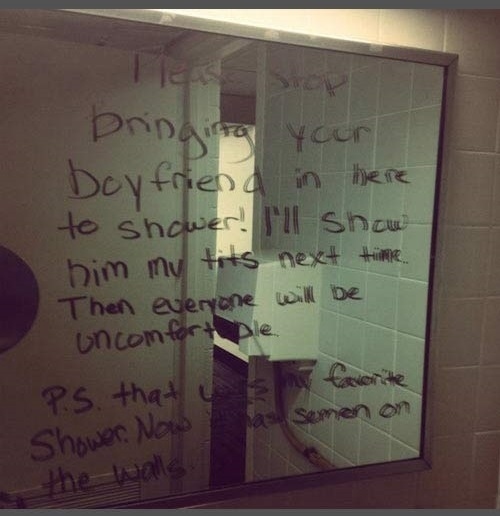 Please stop
bringing your
boyfriend in here
to shower! I'll show
him my tits next time.
Then everyone will be
uncomfortable.
P.S. that was my favorite
Shower. Now it has semen on
the walls.